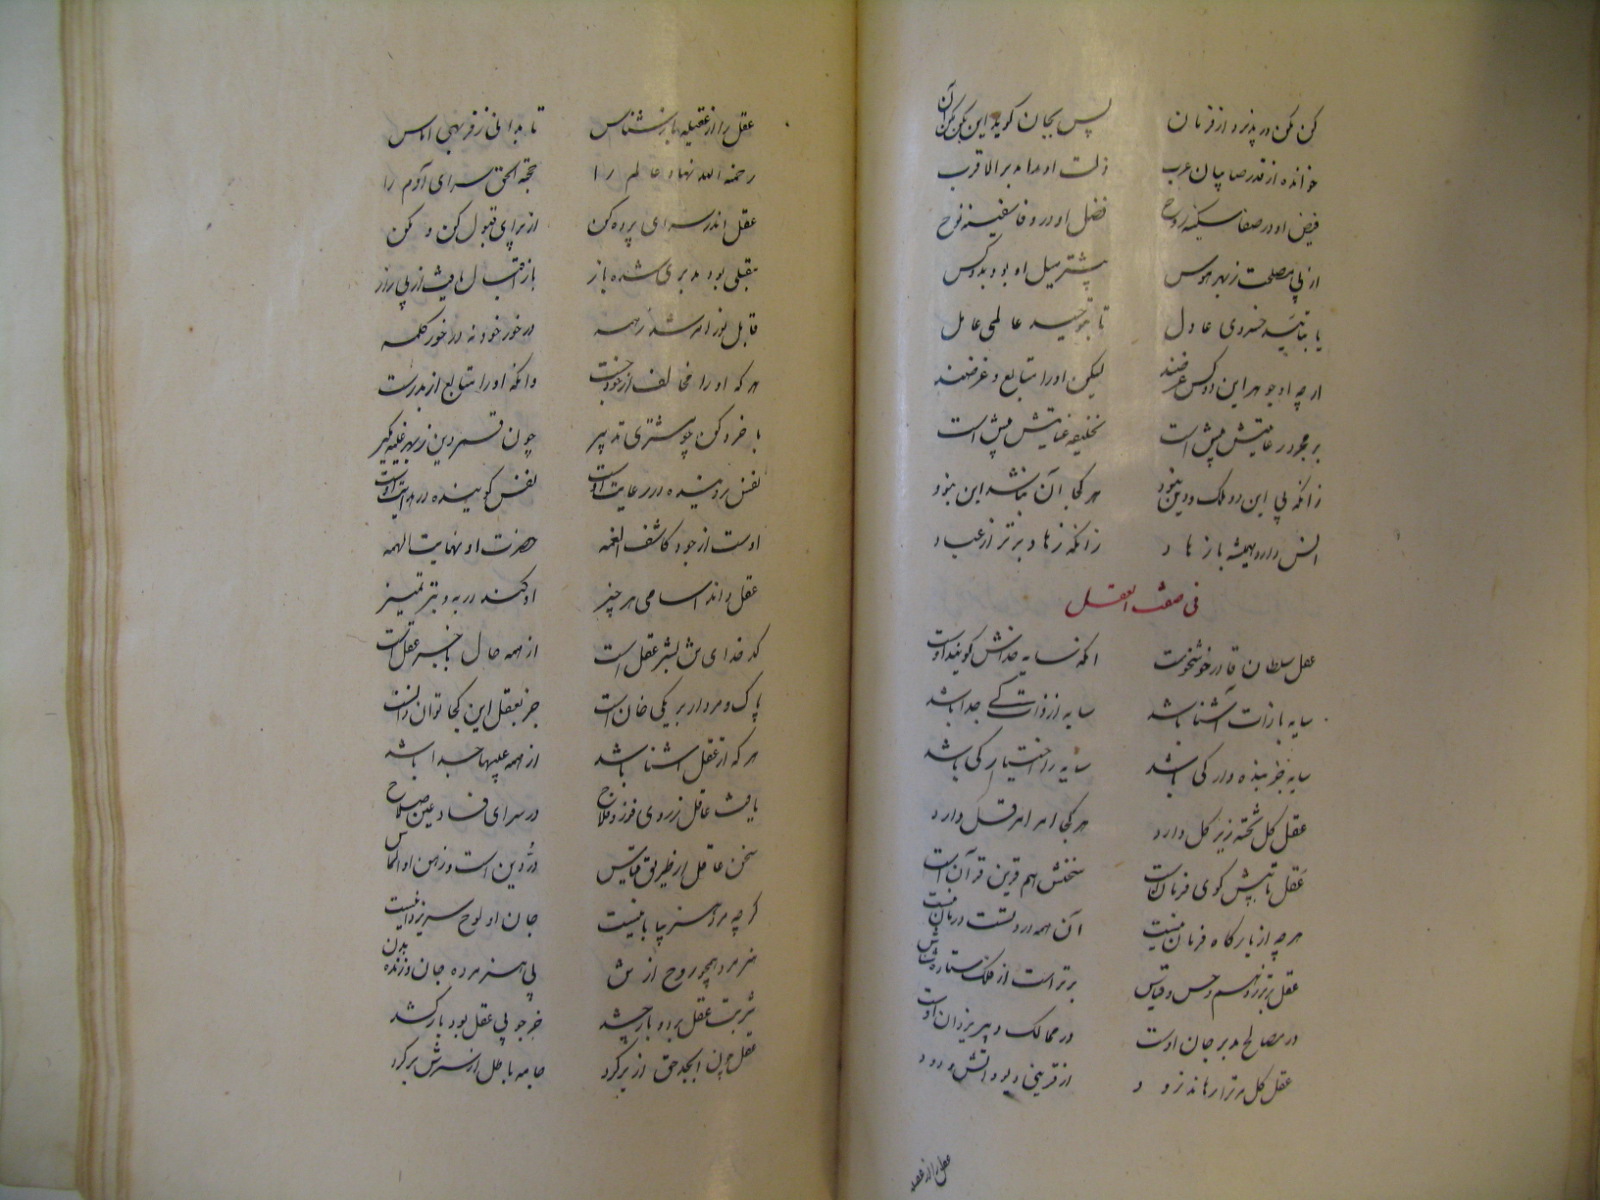 کن مکن در پذیرد از فرمان پس بجان گوید این بکن مکن آن
خوانده از قدر صاحبان عرب ذلت او را مدبر الاقرب
فیض او در صفا سکینهٔ روح فضل او در وفا سفینه نوح
از پی مصلحت ز بهر هوس بیشتر میل او بود بدو کس
یا بتأیید خسروی عادل تا بتوحید عالمی عامل
ارچه او جوهر این دو کس عرضند لیکن او را متابع و غرضند
در رعایتش پیش است عنایتش بیش است
زانکه بی این دو ملک و دین نبود هر کجا آن نباشد این نبود
انس دارد همیشه با زهاد زانکه زهاد برتر از عباد
فی صفت العقل
عقل سلطان قادر خوشخوست آنکه سایه خدایش گویند اوست
سایه با ذات آشنا باشد سایه از ذات کی جدا باشد
سایه جز بنده وار کی باشد سایه را اختیار کی باشد
عقل کل تخته زیر کل دارد هر کجا امر امر قل دارد
عقل تا پیش گوی فرمانست سخنش هم قرین قرآن است
هرچه از بارگاه فرمان نیست آن همه دردتست درمان نیست
عقل برتر ز وهم و حس و قیاس برتر است از فلک ستاره شناس
در مصالح مدبر جان اوست در ممالک دبیر یزدان اوست
عقل کل مر ترا رهاند زود از قرینی دیو و آتش و دود
عقل را از عقیله
عقل را از عقیله باز شناس تا بدانی ز فربهی آماس
رحمة الله نهاد عالم را حجة الحق سرای آدم را
عقل اندر سرای پرده کن از برای قبول کن و مکن
مقبلی بود مدبری شده باز باز اقبال یافت از پی راز
قابل نور امر شد ز همه در خور خود نه در خور کلمه
هر که او را مخالف از خود جست وانکه او را متابع از بد رست
با خرد کن چو مشتری تدبیر چون قمر دین ز بهر غلبه مگیر
نفس روینده در رعایت اوست نفس گوینده در هدایت اوست
اوست از جود کاشف الغمه حضرت او نهایت الهمه
عقل داند اسامی هر چیز او کند در بد و بتر تمییز
کدخدای تن بشر عقل است از همه حال با خبر عقل است
پاک و مردار بر یکی خان است جز بعقل این کجا توان دانست
هر که از عقل آشنا باشد از همه عیبها جدا باشد
یافت عاقل ز روی فوز و فلاح در سرای فساد عین صلاح
سخن عاقل از طریق قیاس در دین است و ذهن او الماس
گرچه مرد هنر بپا یا نیست جان او لوح سر یزدانیست
هنر مرد همچو روح از تن بی هنر مرده جان و زنده بدن
شربت عقل برد بار چشد خر چو بی عقل بود بار کشد
عقل چون ابجد حق از بر کرد جامه باطل از سرش بر کرد